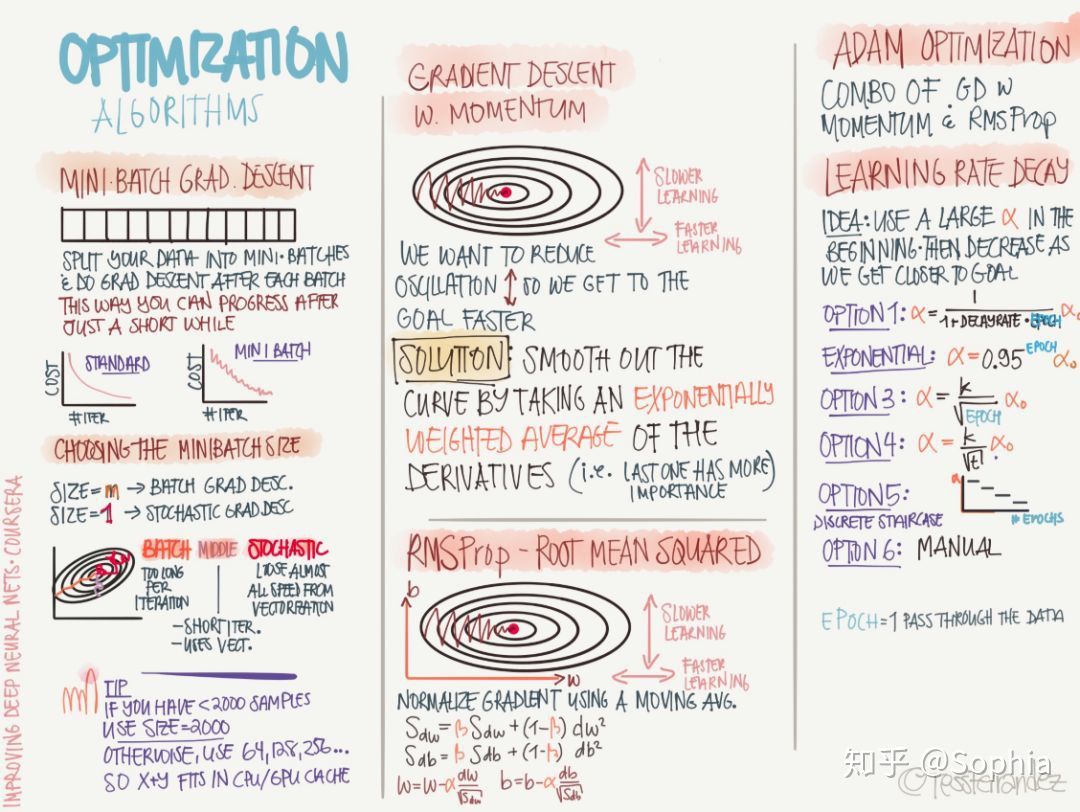 OPTIMIZATION
ALGORITHMS
MINI-BATCH GRAD. DESCENT
SPLIT YOUR DATA INTO MINI-BATCHES
& DO GRAD DESCENT AFTER EACH BATCH
THIS WAY YOU CAN PROGRESS AFTER
JUST A SHORT WHILE
COST
STANDARD
# ITER
COST
MINI BATCH
# ITER
CHOOSING THE MINIBATCH SIZE
SIZE=m → BATCH GRAD DESC.
SIZE=1 → STOCHASTIC GRAD DESC
BATCH MIDDLE STOCHASTIC
TOO LONG
PER
ITERATION
LOSE ALMOST
ALL SPEED FROM
VECTORIZATION
-SHORT ITER.
-USES VECT.
TIP
IF YOU HAVE <2000 SAMPLES
USE SIZE=2000
OTHERWISE, USE 64, 128, 256...
SO X+Y FITS IN CPU/GPU CACHE
IMPROVING DEEP NEURAL NETS · COURSERA
GRADIENT DESCENT
W. MOMENTUM
SLOWER
LEARNING
FASTER
LEARNING
WE WANT TO REDUCE
OSCILLATION ↕ SO WE GET TO THE
GOAL FASTER
SOLUTION: SMOOTH OUT THE
CURVE BY TAKING AN EXPONENTIALLY
WEIGHTED AVERAGE OF THE
DERIVATIVES (i.e. LAST ONE HAS MORE
IMPORTANCE)
RMSProp - ROOT MEAN SQUARED
b
SLOWER
LEARNING
W
FASTER
LEARNING
NORMALIZE GRADIENT USING A MOVING AVG.
Sdw = β Sdw + (1-β) dw²
Sdb = β Sdb + (1-β) db²
w = w - α dw/√Sdw b = b - α db/√Sdb
ADAM OPTIMIZATION
COMBO OF GD W
MOMENTUM & RMSProp
LEARNING RATE DECAY
IDEA: USE A LARGE α IN THE
BEGINNING. THEN DECREASE AS
WE GET CLOSER TO GOAL
OPTION 1: α = 1/(1+DECAYRATE · EPOCH) α₀
EXPONENTIAL: α = 0.95^EPOCH α₀
OPTION 3: α = k/√EPOCH α₀
OPTION 4: α = k/√t α₀.
OPTION 5:
DISCRETE STAIRCASE
α
# EPOCHS
OPTION 6: MANUAL
EPOCH = 1 PASS THROUGH THE DATA
知乎 @Sophia